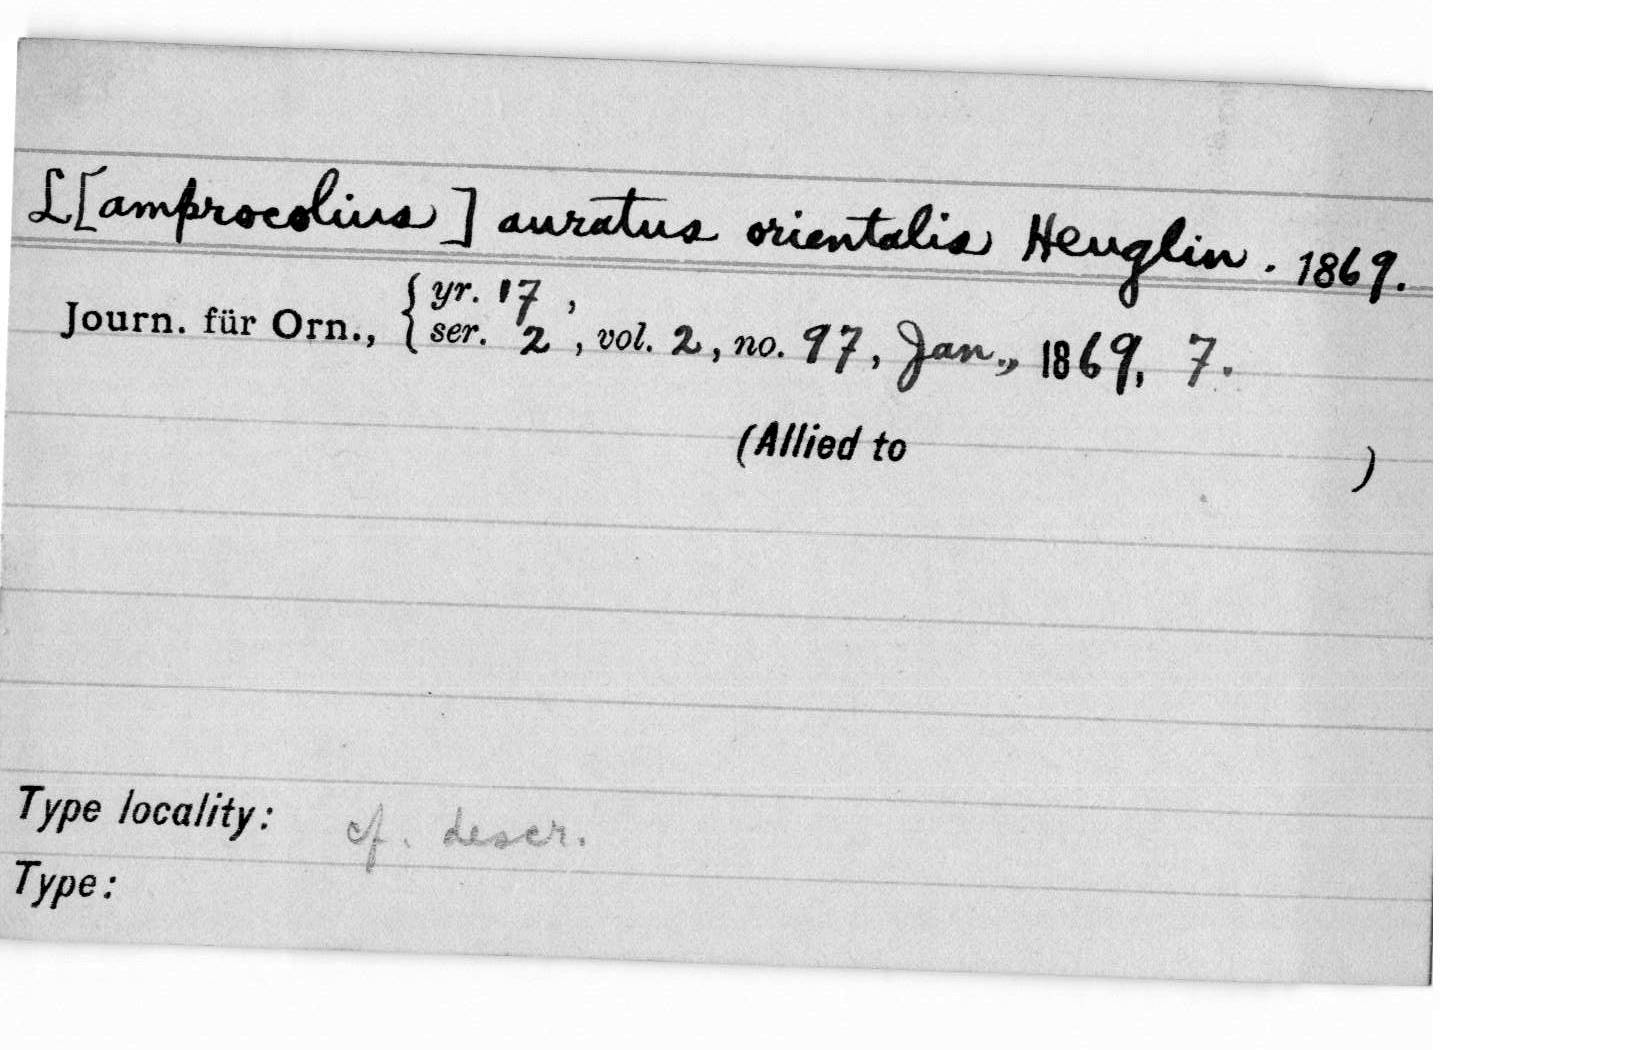 L[amprocolius] auratus orientalis Heuglin. 1869.
Journ. für Orn., { yr. 17,
ser. 2, vol. 2, no. 97, Jan., 1869, 7.
(Allied to )
Type locality: cf. descr.
Type: